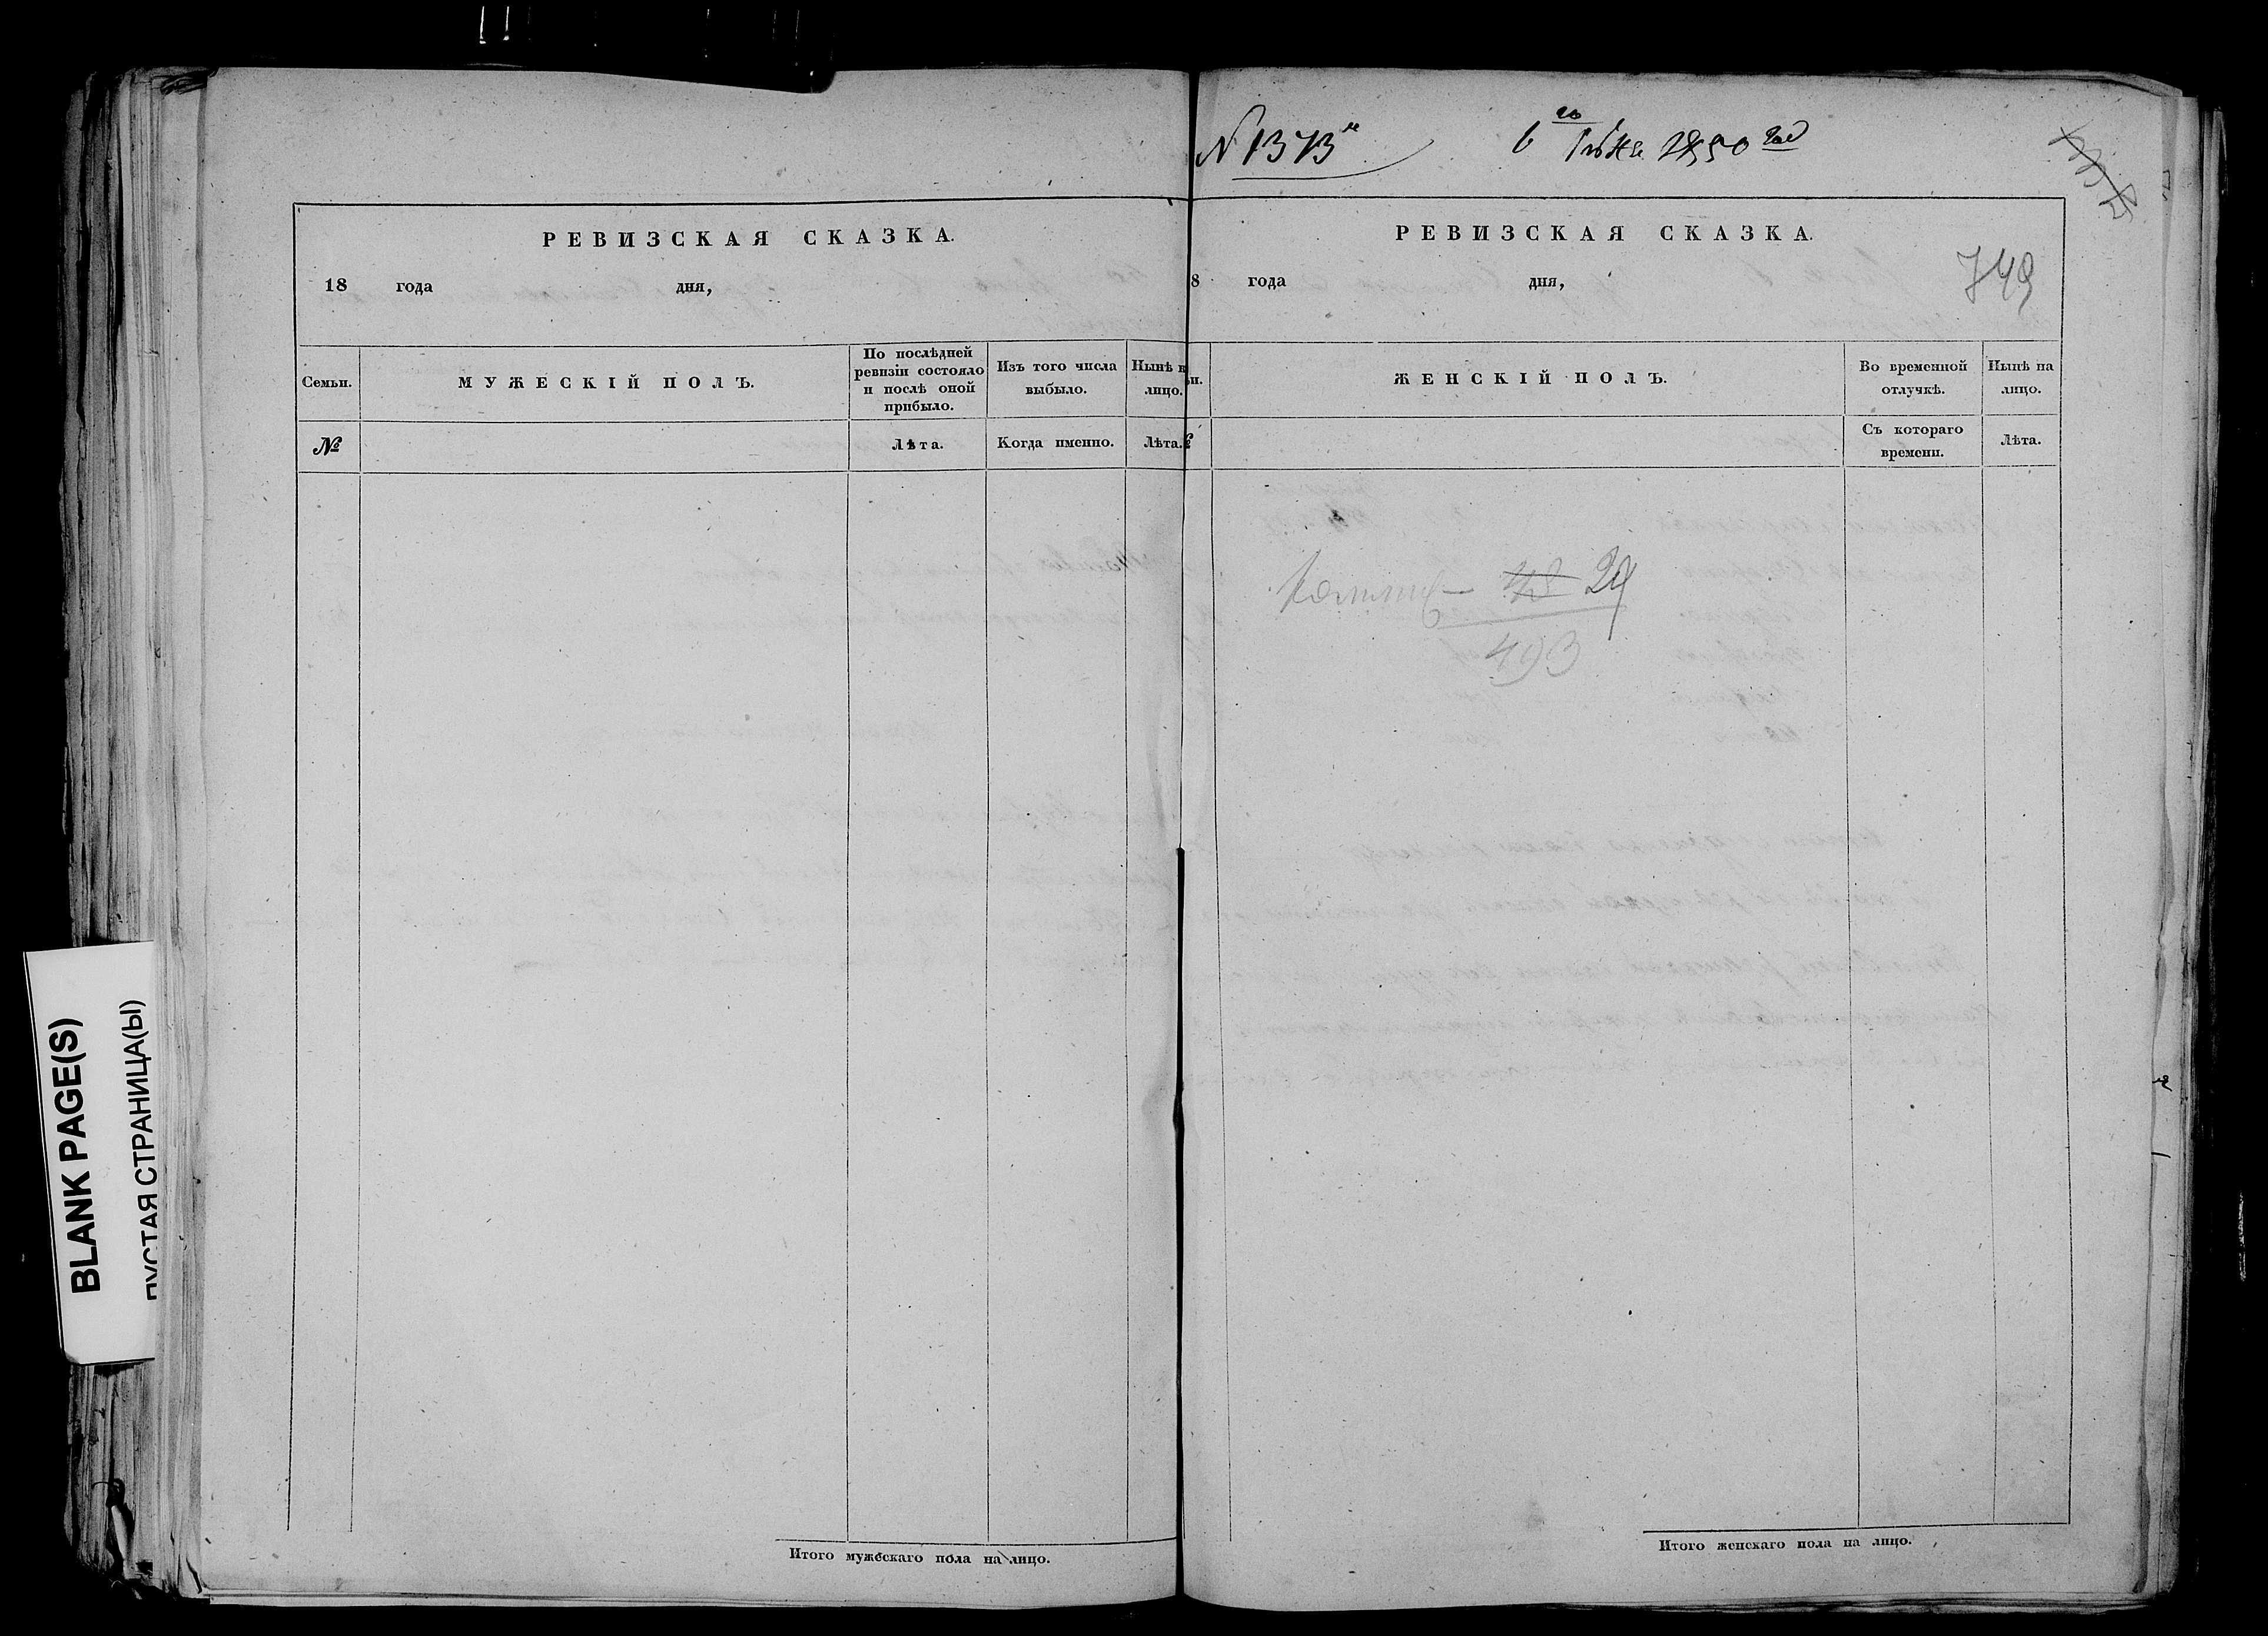 BLANK PAGE(S)
ПУСТАЯ СТРАНИЦА(Ы)
РЕВИЗСКАЯ СКАЗКА.
18 года дня,
Семьи.
МУЖЕСКІЙ ПОЛЪ.
По послѣдней
ревизіи состояло
и послѣ оной
прибыло.
Изъ того числа
выбыло.
Нынѣ н
лицо.
№
Лѣта.
Когда именно.
Лѣта.
Итого мужескаго пола на лицо.
N 1373
6 го 1850 год
749
РЕВИЗСКАЯ СКАЗКА.
8 года дня,
ЖЕНСКІЙ ПОЛЪ.
Во временной
отлучкѣ.
Нынѣ на
лицо.
Съ котораго
времени.
Лѣта.
48 29
493
Итого женскаго пола на лицо.